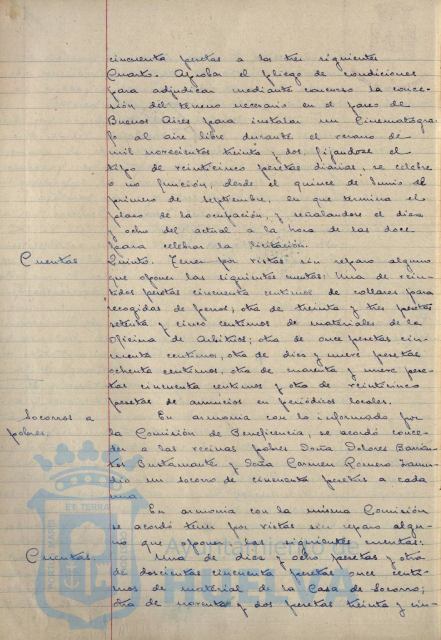 cincuenta pesetas a los tres siguientes
Cuarto. Aprobar el pliego de condiciones
para adjudicar mediante concurso la conce-
sión del terreno necesario en el paseo de
Buenos Aires para instalar un Cinematógra-
fo al aire libre durante el verano de
mil novecientos treinta y dos, fijándose el
tipo de veinticinco pesetas diarias, se celebre
o no función, desde el quince de Junio al
primero de septiembre, en que termina el
plazo de la ocupación, y señalándose el diez
y ocho del actual a la hora de las doce
para celebrar la licitación.
Cuentas
Quinto. Tener por vistas sin reparo alguno
que oponer las siguientes cuentas: Una de vein-
tidos pesetas cincuenta centimos de collares para
recogidas de perros; otra de treinta y tres pesetas
setenta y cinco centimos de materiales de la
Oficina de Arbitrios; otra de once pesetas cin-
cuenta centimos, otra de diez y nueve pesetas
ochenta centimos, otra de cuarenta y nueve pese-
tas cincuenta centimos y otra de veinticinco
pesetas de anuncios en periódicos locales.
Socorros a
pobres.
En armonia con lo informado por
la Comisión de Beneficencia, se acordó conce-
der a las vecinas pobres Doña Dolores Barran-
tes Bustamante y Doña Carmen Romero Zamu-
dio un socorro de cincuenta pesetas a cada
una.
En armonia con la misma Comisión
se acordó tener por vistas sin reparo algu-
no que oponer las siguientes cuentas:
Cuentas.
Una de diez y ocho pesetas y otra
de doscientas cincuenta pesetas once centi-
mos de material de la Casa de Socorro;
otra de noventa y dos pesetas treinta y cin-
Ayuntamiento de
HUELVA
PORTUS MARIS
ET TERRÆ